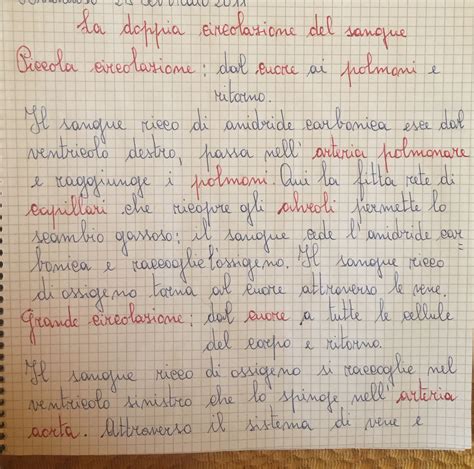 La doppia circolazione del sangue
Piccola circolazione: dal cuore ai polmoni e
ritorno.
Il sangue ricco di anidride carbonica esce dal
ventricolo destro, passa nell'arteria polmonare
e raggiunge i polmoni. Qui la fitta rete di
capillari che ricopre gli alveoli permette lo
scambio gassoso: il sangue cede l'anidride car=
bonica e raccoglie l'ossigeno. Il sangue ricco
di ossigeno torna al cuore attraverso le vene.
Grande circolazione: dal cuore a tutte le cellule
del corpo e ritorno.
Il sangue ricco di ossigeno si raccoglie nel
ventricolo sinistro che lo spinge nell'arteria
aorta. Attraverso il sistema di vene e